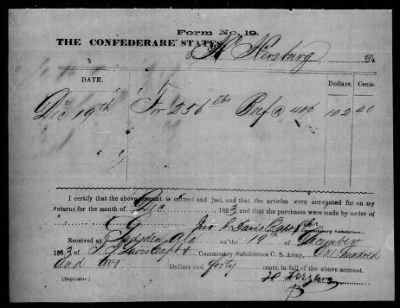 Form No. 19.
THE CONFEDERARE STATES
To H Hersburg Dr.
DATE.
Dollars. Cents.
Dec 19th For 256 lbs Beef @ 40c 102 40
I certify that the above account is correct and just, and that the articles were accounted for on my
returns for the month of Dec 1863 and that the purchases were made by order of
Commissary Subsistence.
Received at Gadsden Ala on the 19th of December
1863 of Commissary Subsistence C. S. Army, One Hundred
and two Dollars and forty cents, in full of the above account.
(Duplicate.)